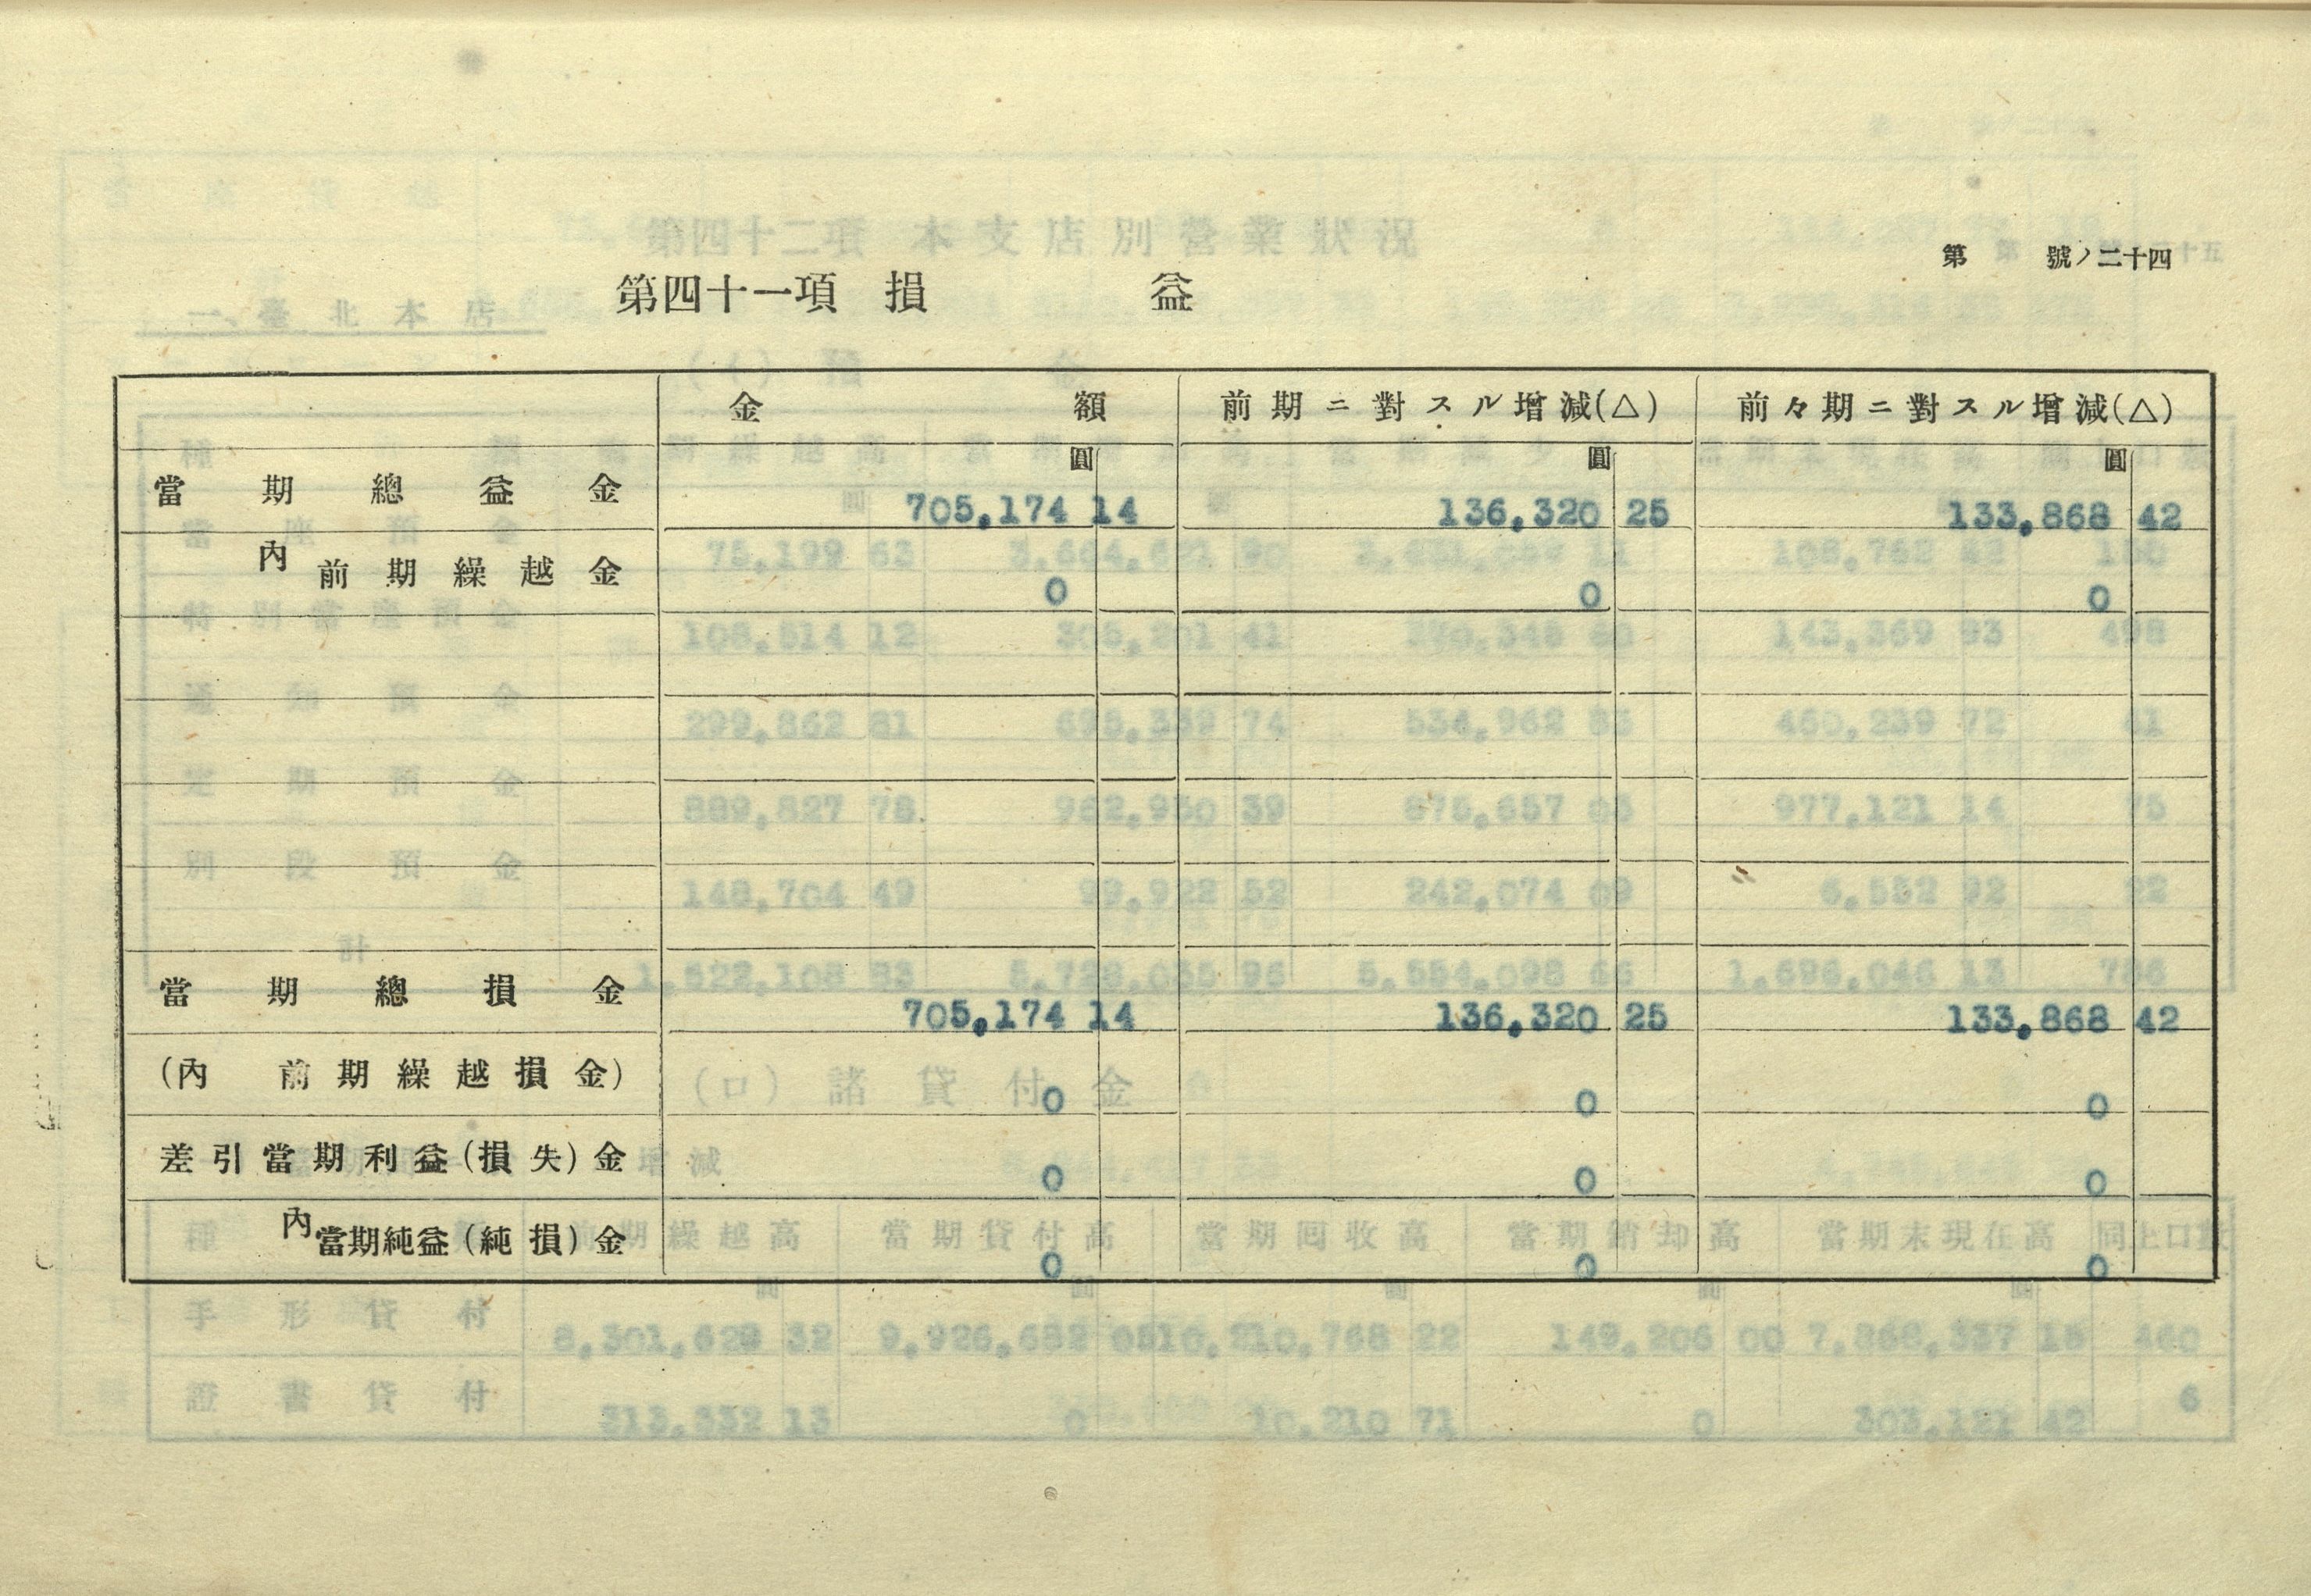 第　號ノ二十四
第四十一項　損　益
金額　前期ニ對スル增減(△)　前々期ニ對スル增減(△)
圓　圓　圓
當期總益金　705,174 14　136,320 25　133,868 42
內前期繰越金　0　0　0
當期總損金　705,174 14　136,320 25　133,868 42
(內　前期繰越損金)　0　0　0
差引當期利益(損失)金　0　0　0
內當期純益(純損)金　0　0　0